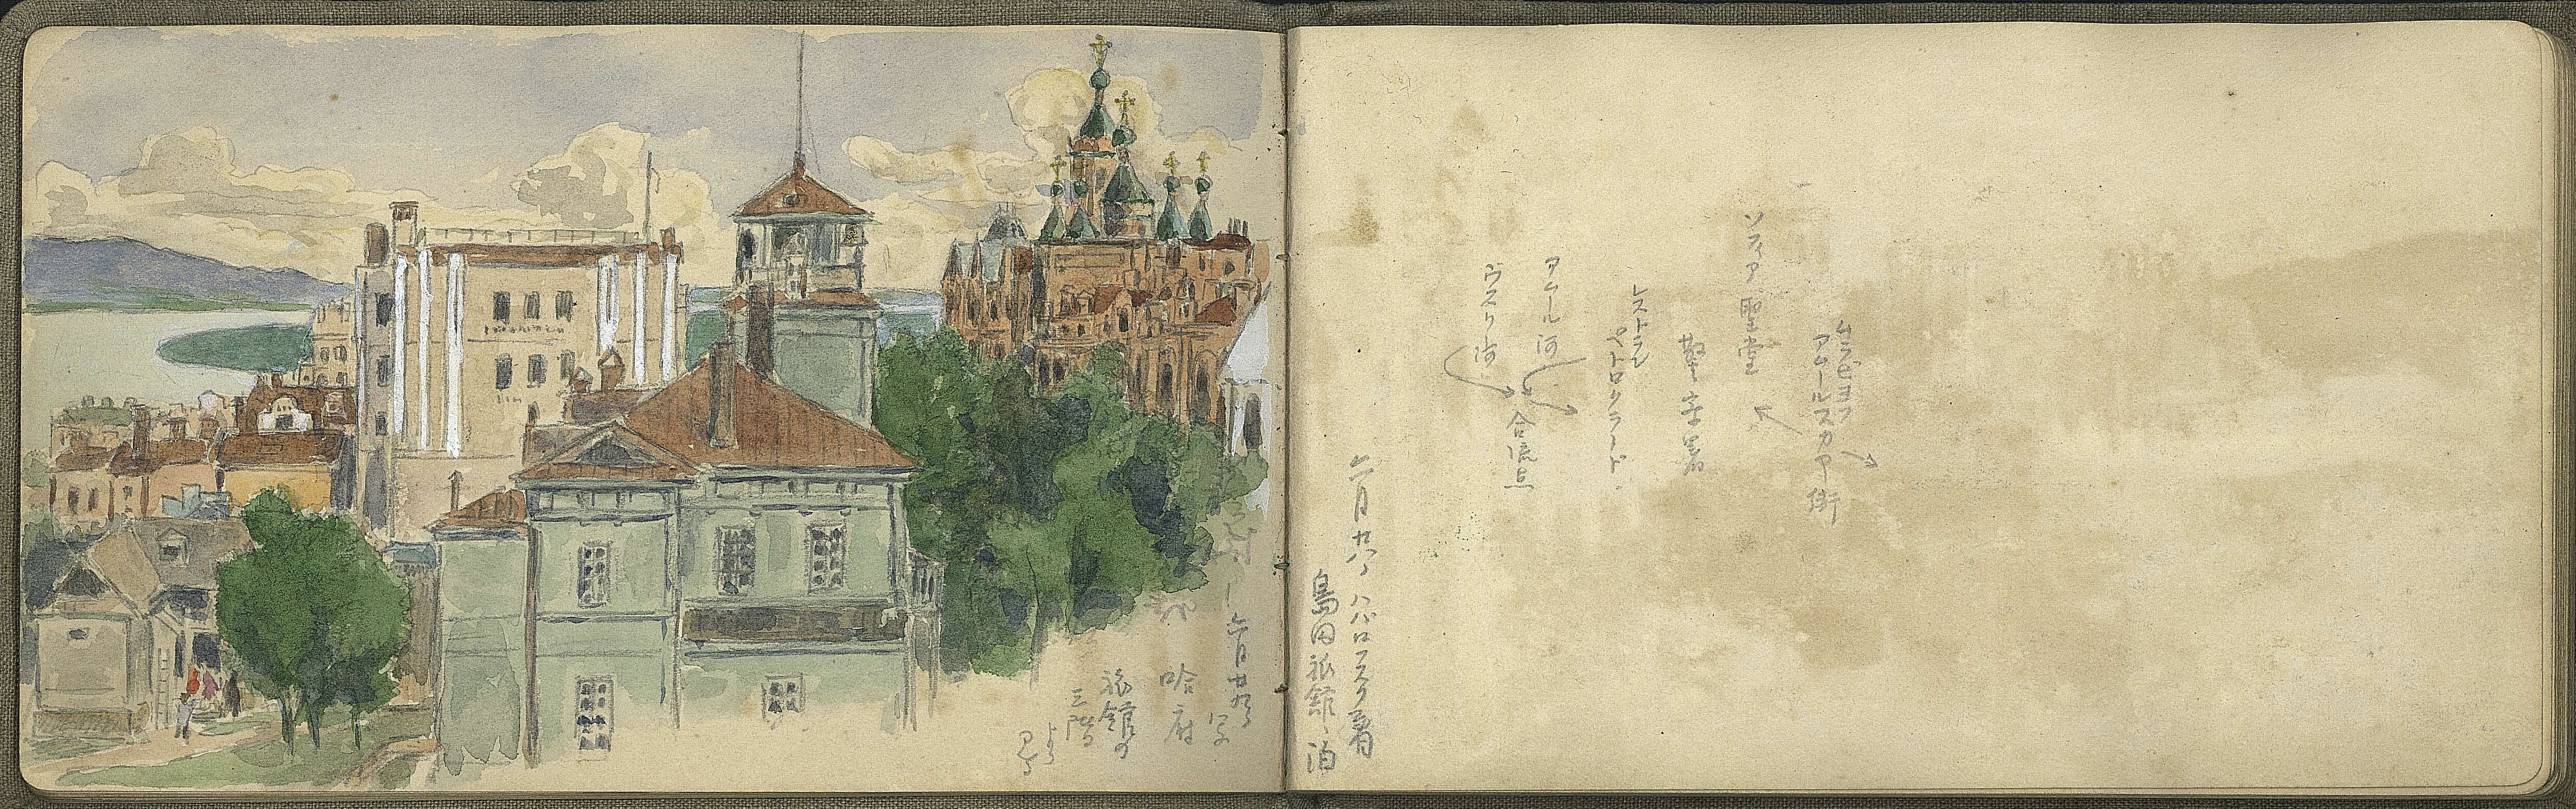 ムラビヨフ
アムールスカヤ街
ソフィア聖堂
警察署
レストラン
ペトログラード
アムール河
ウスリ河
合流点
六月廿八日ハバロフスク着
島田旅館ニ泊
六月廿九日写
哈府
旅館の
三階
より
見る